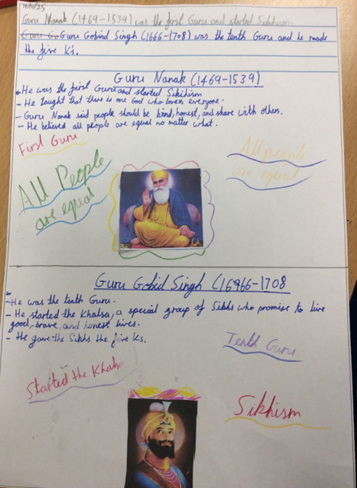 Guru Nanak (1469-1539) was the first Guru and started Sikhism.
Guru Gobind Singh (1666-1708) was the tenth Guru and he made
the five Ks.
Guru Nanak (1469-1539)
- He was the first Guru and started Sikhism
- He taught that there is one God who loves everyone.
- Guru Nanak said people should be kind, honest, and share with others.
- He believed all people are equal no matter what.
First Guru
All People
are equal
All people
are equal
Guru Gobid Singh (16966-1708
- He was the tenth Guru.
- He started the Khalsa, a special group of Sikhs who promise to live
good, brave, and honest lives.
- He gave the Sikhs the five Ks.
Tenth Guru
Started the Khalsa
Sikhism